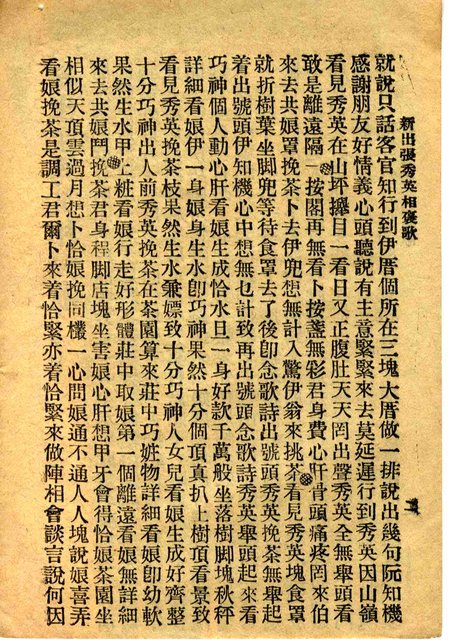 新出張秀英相褒歌
就說只話客官知行到伊厝個所在三塊大厝做一排說出幾句阮知機
感謝朋友好情義心頭聽說有主意緊緊來去莫延遲行到秀英因山嶺
看見秀英在山坪攑目一看日又正腹肚天天罔出聲秀英全無舉頭看
敢是離遠隔一按閣再無看卜按盞無彩君身費心肝骨頭痛疼罔來伯
來去共娘罩挽茶卜去伊兜想無計入驚伊翁來挑茶看見秀英塊食罩
就折樹葉坐脚兜等待食罩去了後卽念歌詩出號頭秀英挽茶無舉起
着出號頭伊知機心中想無乜計致再出號頭念歌詩秀英舉頭起來看
巧神個人動心肝看娘生成恰水旦一身好款千萬般坐落樹脚塊秋秤
詳細看娘伊一身娘身生水卽巧神果然十分個頂真扒上樹頂看景致
看見秀英挽茶枝果然生水兼嫖致十分巧神人女兒看娘生成好齊整
十分巧神出人前秀英挽茶在茶園算來莊中巧娗物詳細看娘卽幼軟
果然生水甲上粧看娘行走好形體莊中取娘第一個離遠看娘無詳細
來去共娘鬥挽茶君身程脚店塊坐害娘心肝想甲牙會得恰娘茶園坐
相似天頂雲過月想卜恰娘挽同欉一心問娘通不通人人塊說娘喜弄
看娘挽茶是調工君爾卜來着恰緊亦着恰緊來做陣相會談言說何因